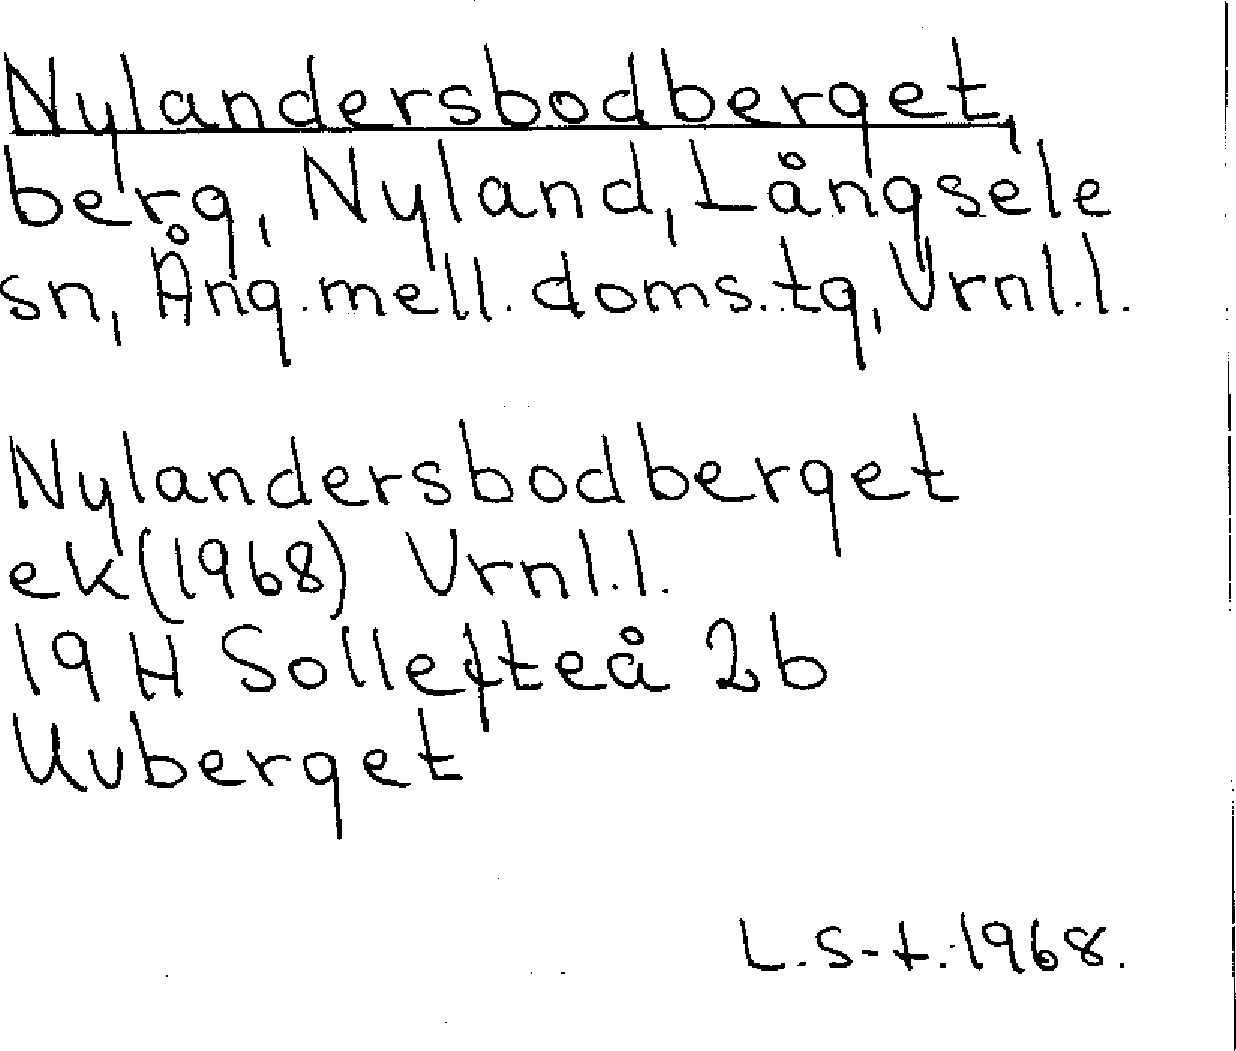 Nylandersbodberget,
berg, Nyland, Långsele
sn, Ång. mell. doms. tg, Vrnl.l.
Nylandersbodberget
ek (1968) Vrnl.l.
19 H Sollefteå 2b
Uvberget
L. S-t. 1968.